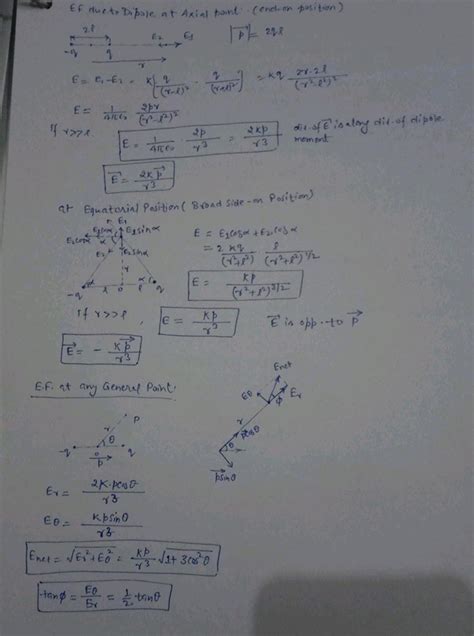 EF due to Dipole at Axial point (end-on position)
2l E₂ E₁ |p⃗| = 2ql
-q q
r
E = E₁ - E₂ = K[q/(r-l)² - q/(r+l)²] = Kq 2r·2l/(r²-l²)²
E = 1/4πε₀ 2pr/(r²-l²)²
If r>>l
E = 1/4πε₀ · 2p/r³ = 2Kp/r³ dir. of E⃗ is along dir. of dipole moment
E⃗ = 2Kp⃗/r³
at Equatorial Position (Broad side-on Position)
E₁ E₁sinα
E₁cosα α E = E₁cosα + E₂cosα
E₂cosα
E₂ E₂sinα = 2 Kq/(r²+l²) l/(r²+l²)^1/2
r
E = Kp/(r²+l²)^3/2
α
-q l o l q
If r>>l, E = Kp/r³ E⃗ is opp. to p⃗
E⃗ = - Kp⃗/r³
E.F. at any General Point.
Enet
Eθ Er
φ
P
r r
θ pcosθ
-q o q θ
p⃗ psinθ
Er = 2K·pcosθ/r³
Eθ = Kpsinθ/r³
Enet = √Er²+Eθ² = Kp/r³ √1+3cos²θ
tanφ = Eθ/Er = 1/2 tanθ